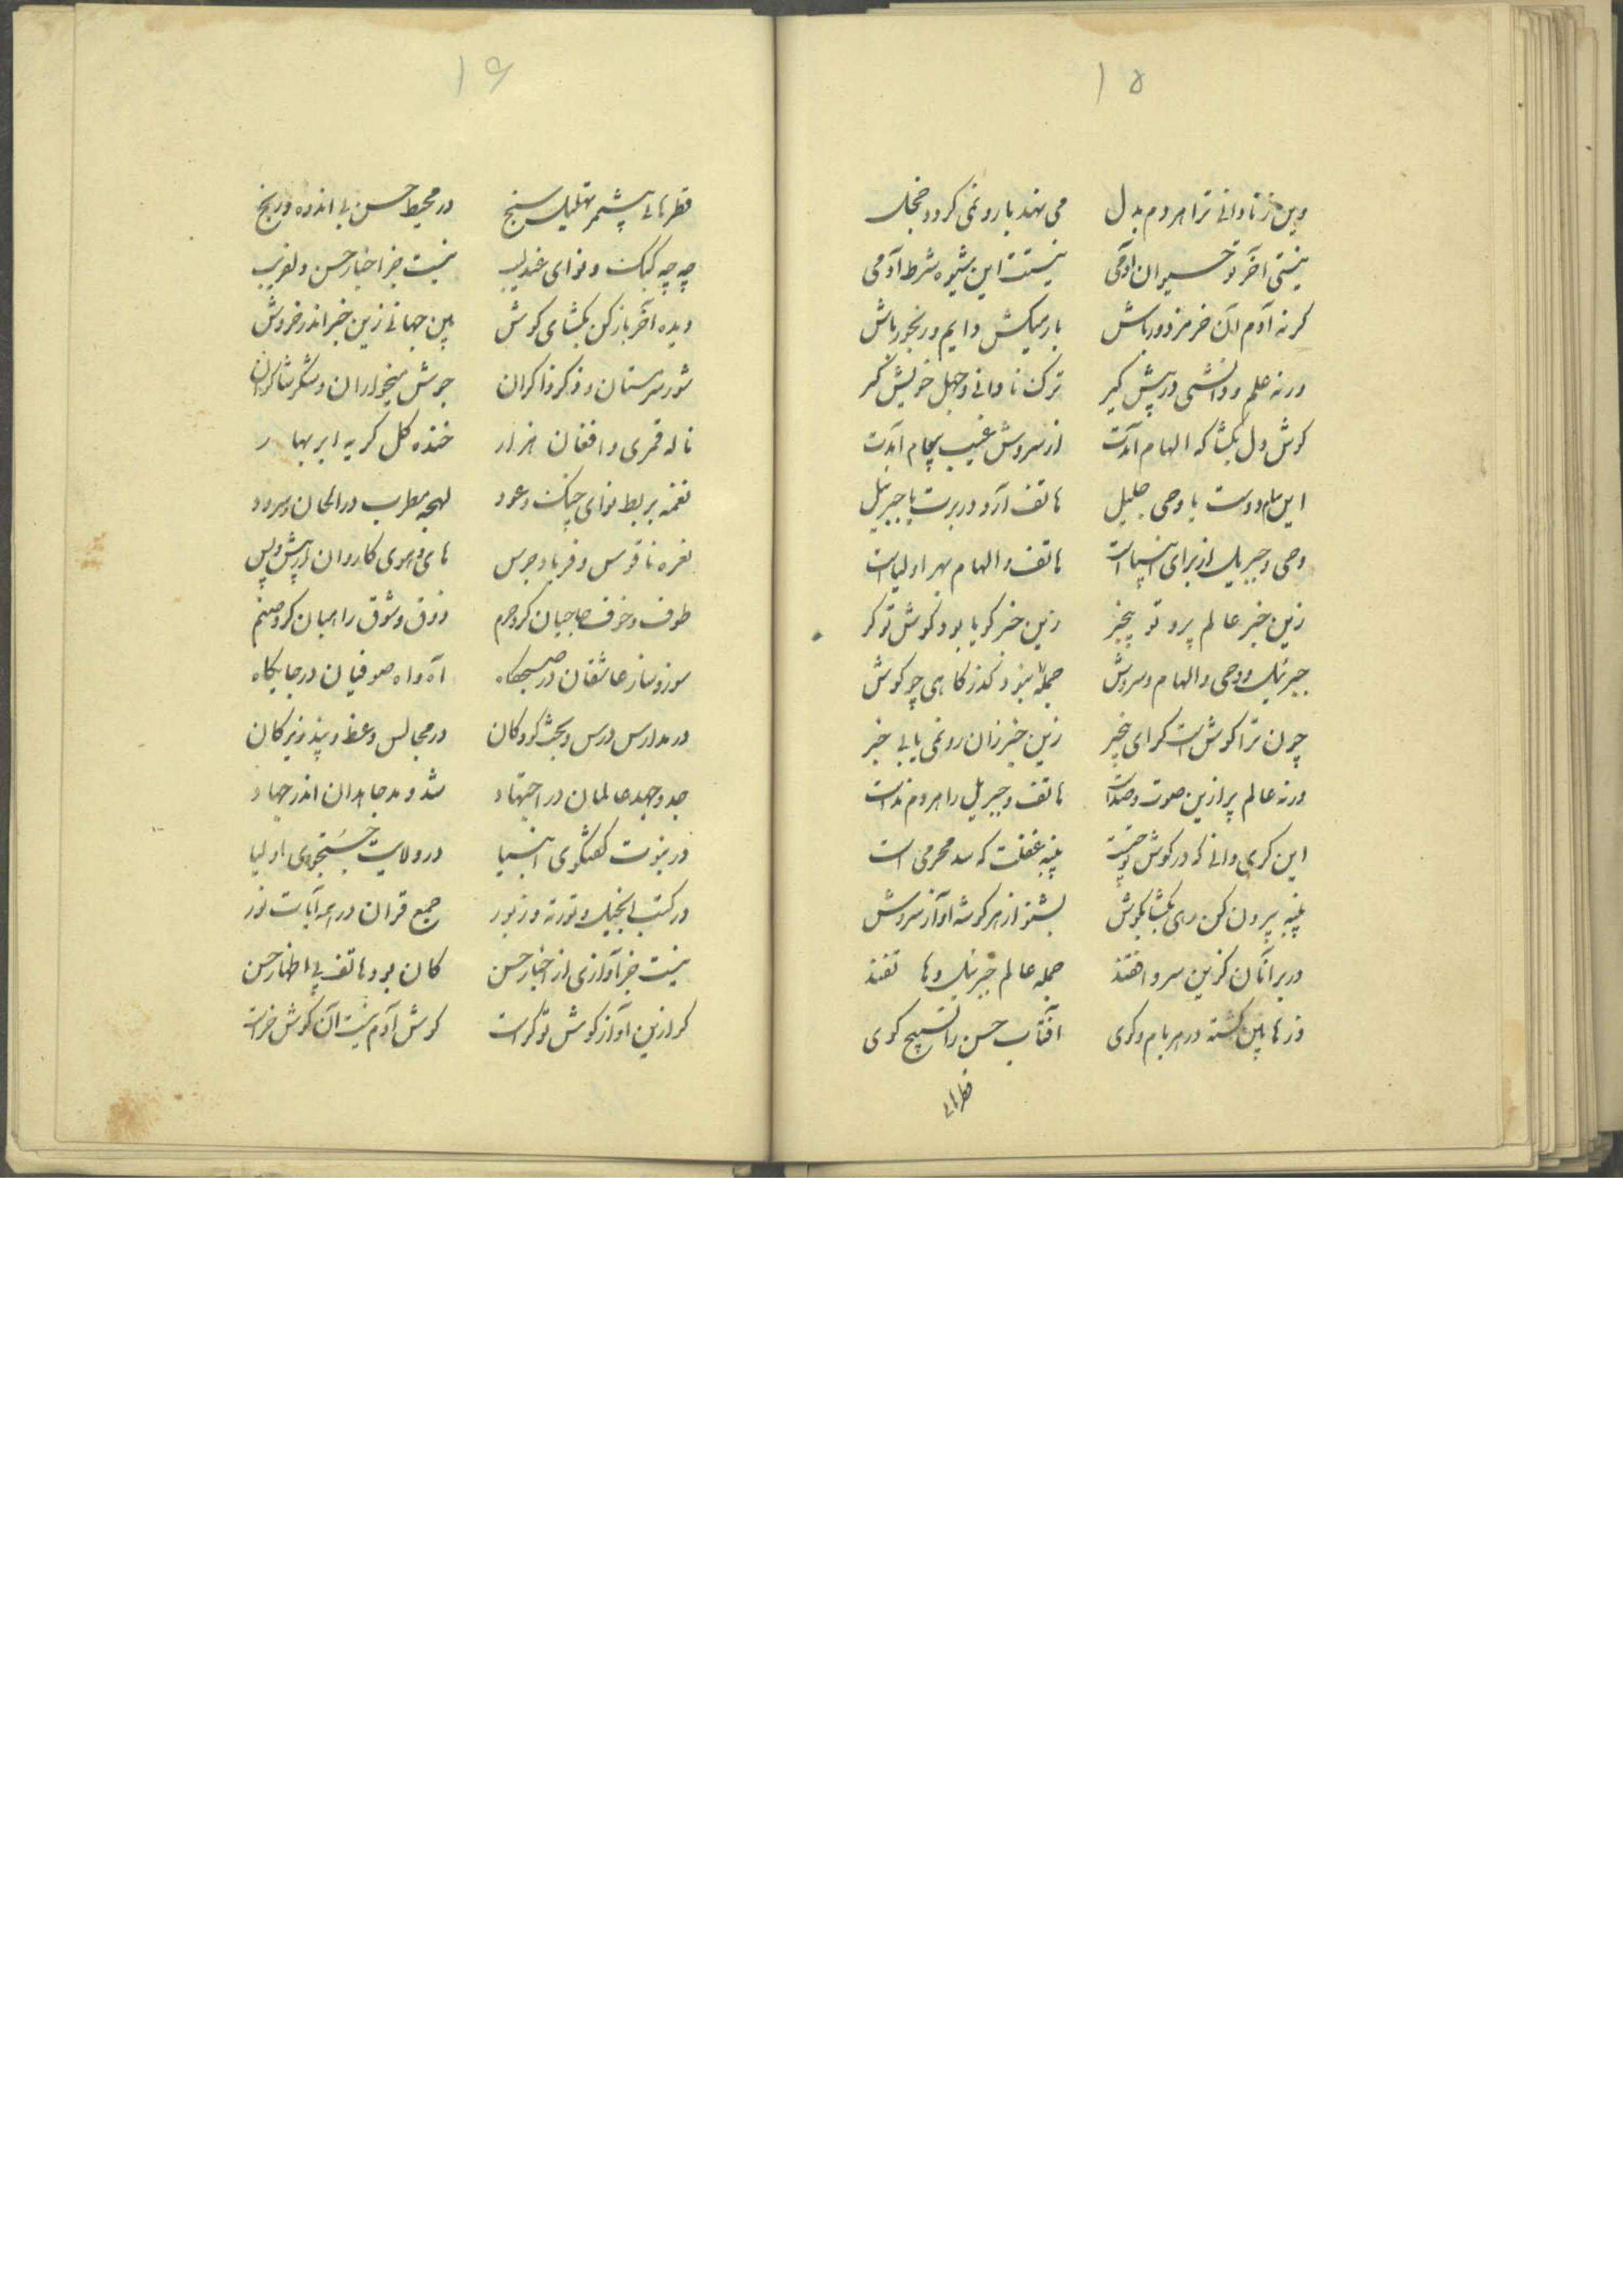 ۱۵
وین ز نادانی ترا هر دم بدل می نهد بار و نمی کردد خجل
نیستی آخر تو حیوان آدمی نیست این شیوه شرط آدمی
کر نه آدم آن خر مزدور باش بار میکش دایم و رنجور باش
ورنه علم و دانشی در پیش کیر ترک نادانی و جهل خویش کیر
کوش دل بکشا که الهام آیدت از سروش غیب پیغام آیدت
این سلام دوست با وحی جلیل هاتف آرد در برت یا جبرئیل
وحی و جبریل از برای انبیاست هاتف و الهام بهر اولیاست
زین خبر عالم پر و تو بیخبر زین خبر کویا بود کوش تو کر
جبرئیل و وحی و الهام و سروش جمله را نبود کذرکاهی چو کوش
چون ترا کوش است کر ای بیخبر زین خبر زان رو نمی یابی خبر
ورنه عالم پر ازین صوت و صداست هاتف و جبریل را هر دم نداست
این کری دانی که در کوش تو چیست پنبه غفلت که سد محرمی است
پنبه بیرون کن دمی بکشا بکوش بشنو از هر کوشه آواز سروش
در بر آنان کزین سر واقفند جمله عالم جبرئیل و هاتفند
ذرها بین کشته در هر بام و کوی آفتاب حسن را تسبیح کوی
قطرهای
۱۶
قطرهای چشم تهلیل سنج در محیط حسن بی اندوه و رنج
چه چه کبک و نوای عندلیب نیست جز اخبار حسن دلفریب
دیده آخر باز کن بکشای کوش بین جهانی زین خبر اندر خروش
شور سرمستان و ذکر ذاکران جوش میخواران و شکر شاکران
ناله قمری و افغان هزار خنده کل کریه ابر بهار
نغمه بربط نوای چنک و عود لهجه مطرب در الحان و سرود
نعره ناقوس و فریاد جرس های و هوی کاروان از پیش و پس
طوف و خوف حاجیان کرد حرم ذوق و شوق راهبان کرد صنم
سوز و ساز عاشقان در صبحکاه آه و واه صوفیان در جایکاه
در مدارس درس و بحث کودکان در مجالس وعظ و پند زیرکان
جد و جهد عالمان در اجتهاد شد و مد جاهدان اندر جهاد
در نبوت کفتکوی انبیا در ولایت جستجوی اولیا
در کتب انجیل و توریه و زبور جمع قران در همه آیات نور
نیست جز آوازی از اخبار حسن کان بود هاتف پی اظهار حسن
کر ازین آواز کوش تو کر است کوش آدم نیست آن کوش خر است